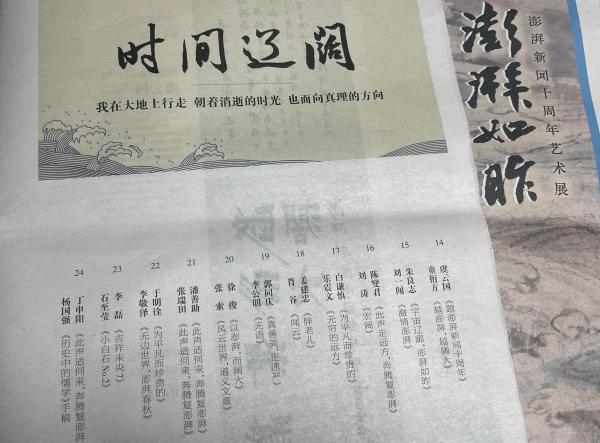 时间辽阔
我在大地上行走 朝着消逝的时光 也面向真理的方向
澎湃新闻十周年艺术展
澎湃如昨
14
虞云国《题澎湃新闻十周年》
童衍方《越澎湃，越阔大》
15
朱良志《宇宙辽廓，澎湃如昨》
刘一闻《激情澎湃》
16
陈燮君《此声走远方，奔腾复澎湃》
刘涛《宏阔》
17
白谦慎《为平凡而珍贵的》
乐震文《无穷的远方》
18
姜建忠《薛老儿》
肖谷《闻云》
19
郭同庆《真善美，正速严》
李公明《无语》
20
徐俊《以澎湃，而阔大》
张索《风云世界，道义文章》
21
潘善助《此声适何来，奔腾复澎湃》
张瑞田《此声适何来，奔腾复澎湃》
22
于明诠《为平凡而珍贵的》
李敬泽《无边世界，澎湃春秋》
23
李磊《吉祥未央-7》
石至莹《小白石No.2》
24
丁申阳《此声适何来，奔腾复澎湃》
杨国强《历史中的儒学》手稿